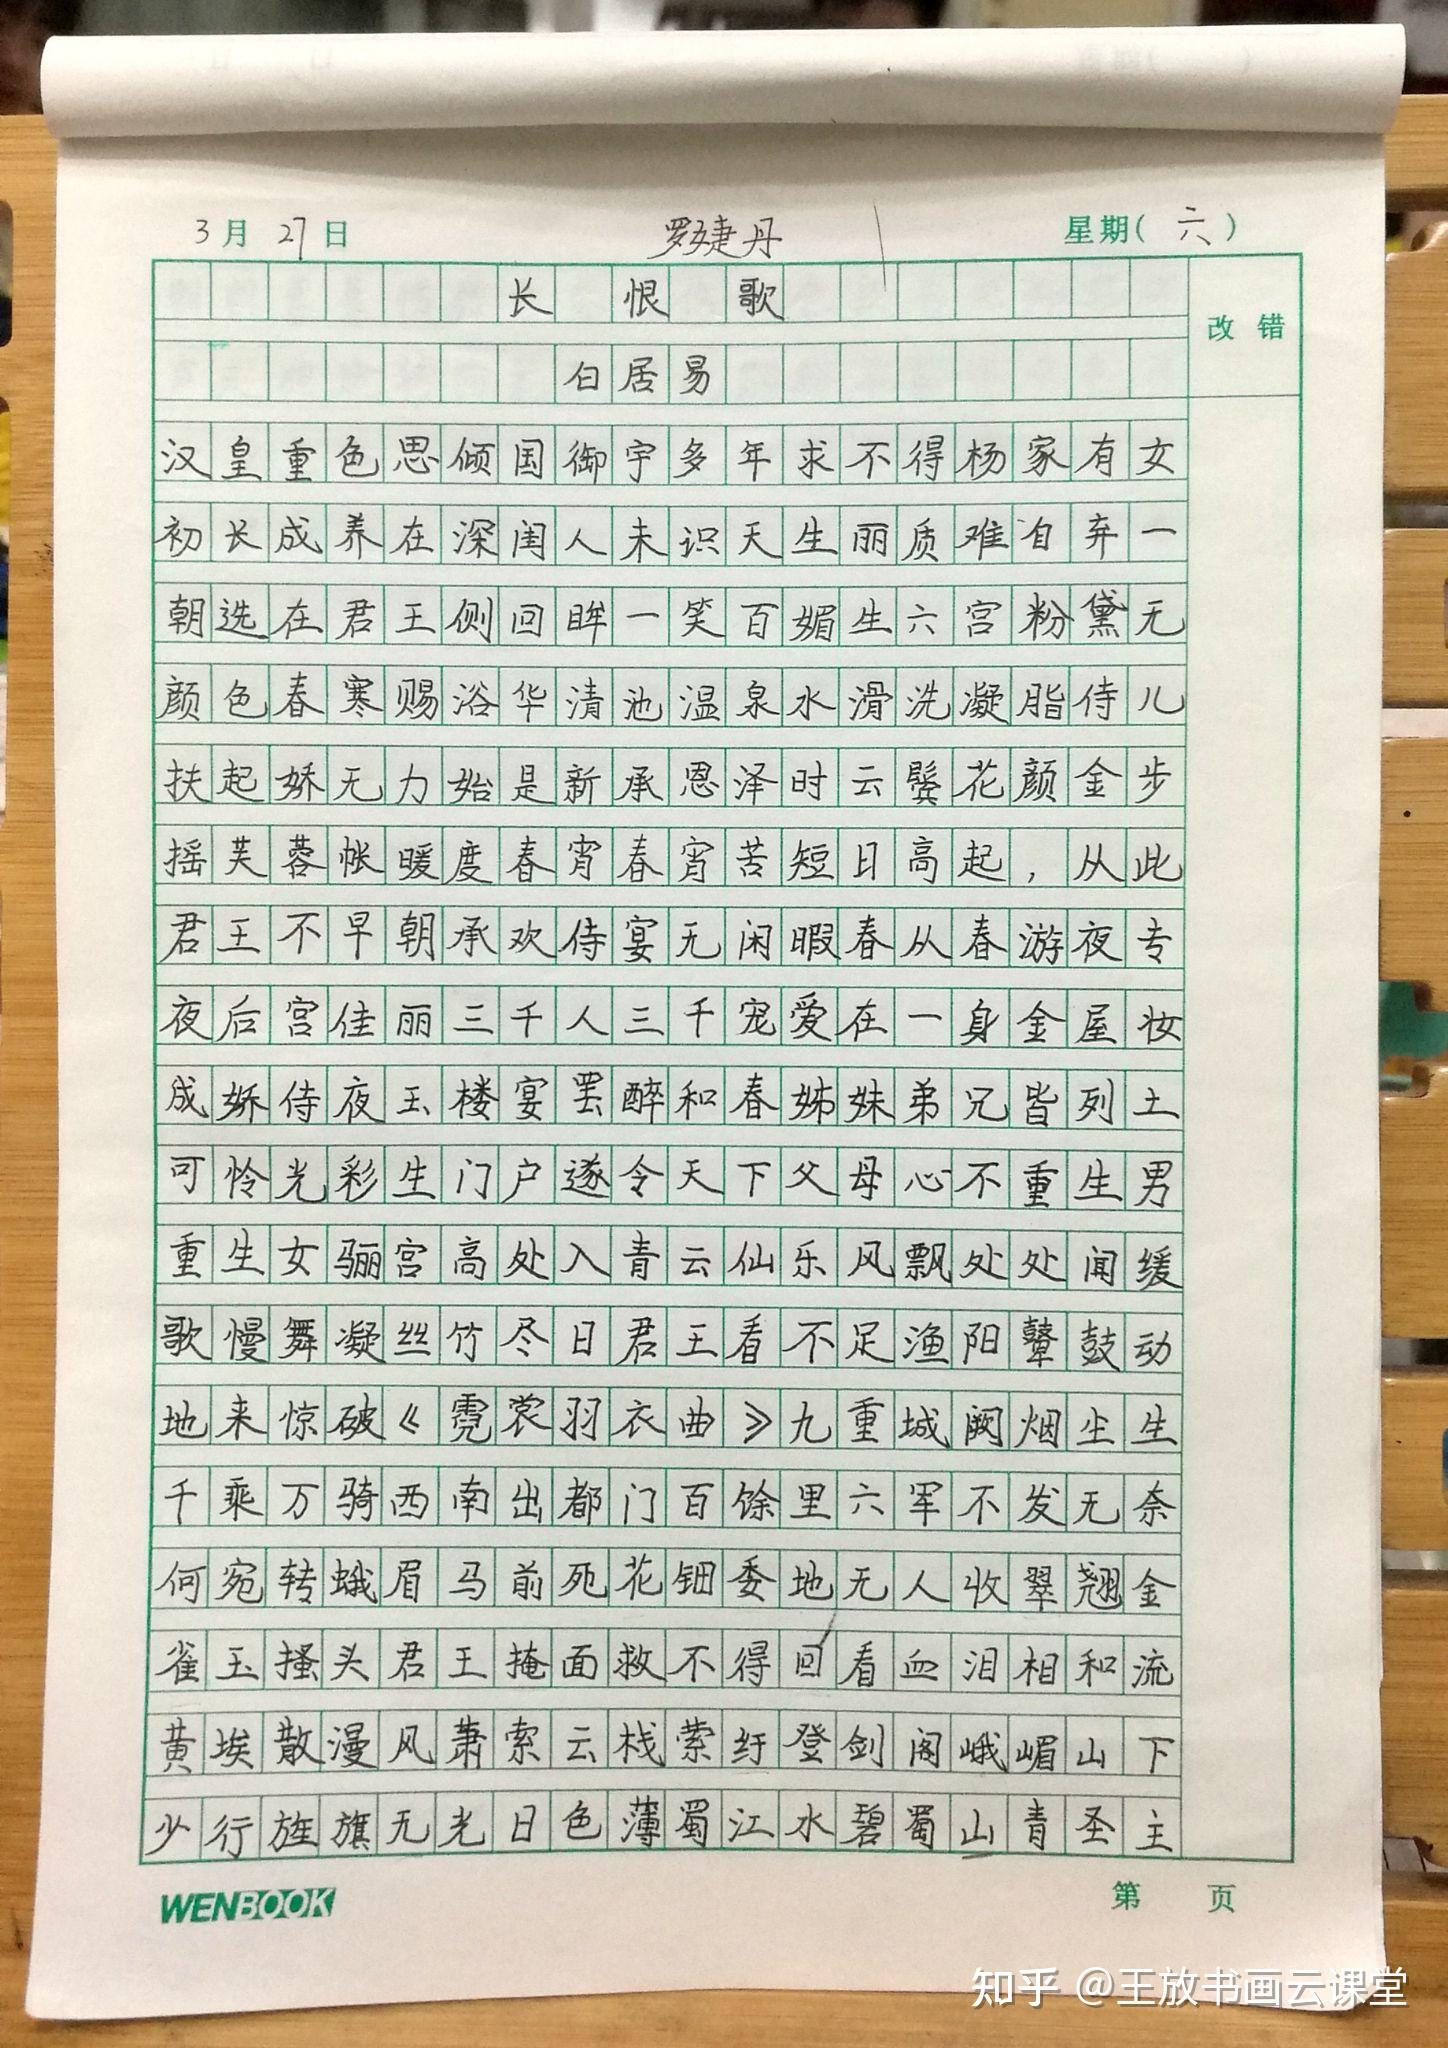 3月27日 罗婕丹 星期(六)
长恨歌
改错
白居易
汉皇重色思倾国御宇多年求不得杨家有女
初长成养在深闺人未识天生丽质难自弃一
朝选在君王侧回眸一笑百媚生六宫粉黛无
颜色春寒赐浴华清池温泉水滑洗凝脂侍儿
扶起娇无力始是新承恩泽时云鬓花颜金步
摇芙蓉帐暖度春宵春宵苦短日高起，从此
君王不早朝承欢侍宴无闲暇春从春游夜专
夜后宫佳丽三千人三千宠爱在一身金屋妆
成娇侍夜玉楼宴罢醉和春姊妹弟兄皆列土
可怜光彩生门户遂令天下父母心不重生男
重生女骊宫高处入青云仙乐风飘处处闻缓
歌慢舞凝丝竹尽日君王看不足渔阳鼙鼓动
地来惊破《霓裳羽衣曲》九重城阙烟尘生
千乘万骑西南出都门百馀里六军不发无奈
何宛转蛾眉马前死花钿委地无人收翠翘金
雀玉搔头君王掩面救不得回看血泪相和流
黄埃散漫风萧索云栈萦纡登剑阁峨嵋山下
少行旌旗无光日色薄蜀江水碧蜀山青圣主
WENBOOK 第 页
知乎 @王放书画云课堂